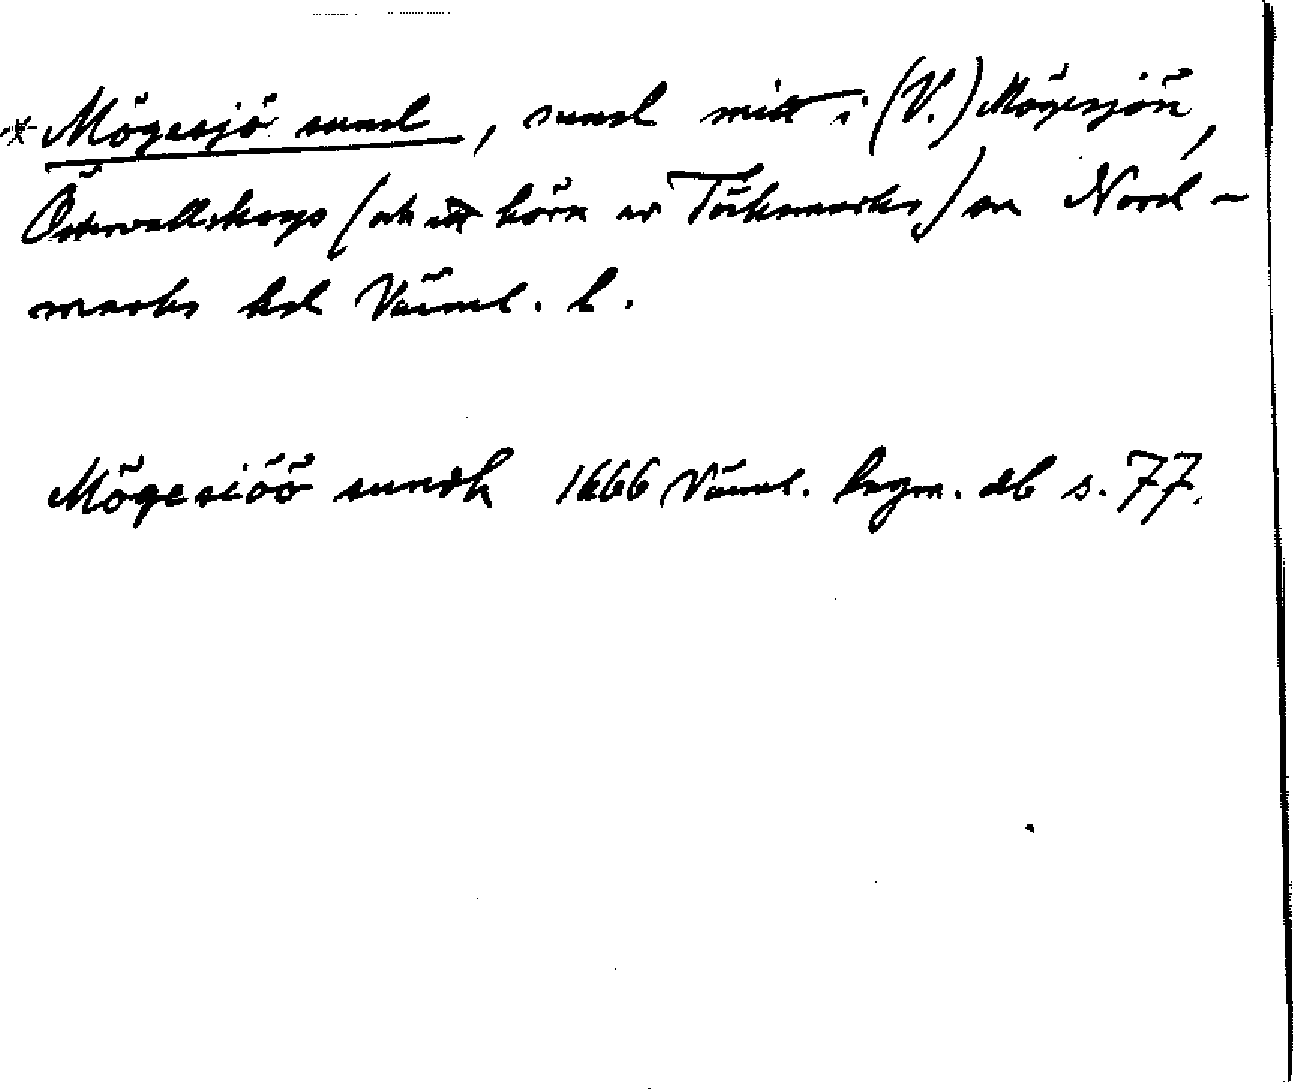 * Mögesjö sund, sund mitt i (V.) Mögesjön,
Östervallskogs (och ett hörn av Töcksmarks) sn Nord-
marks hd Värml. l.
Mögesiöö sundh 1666 Värml. lagm. db s. 77.